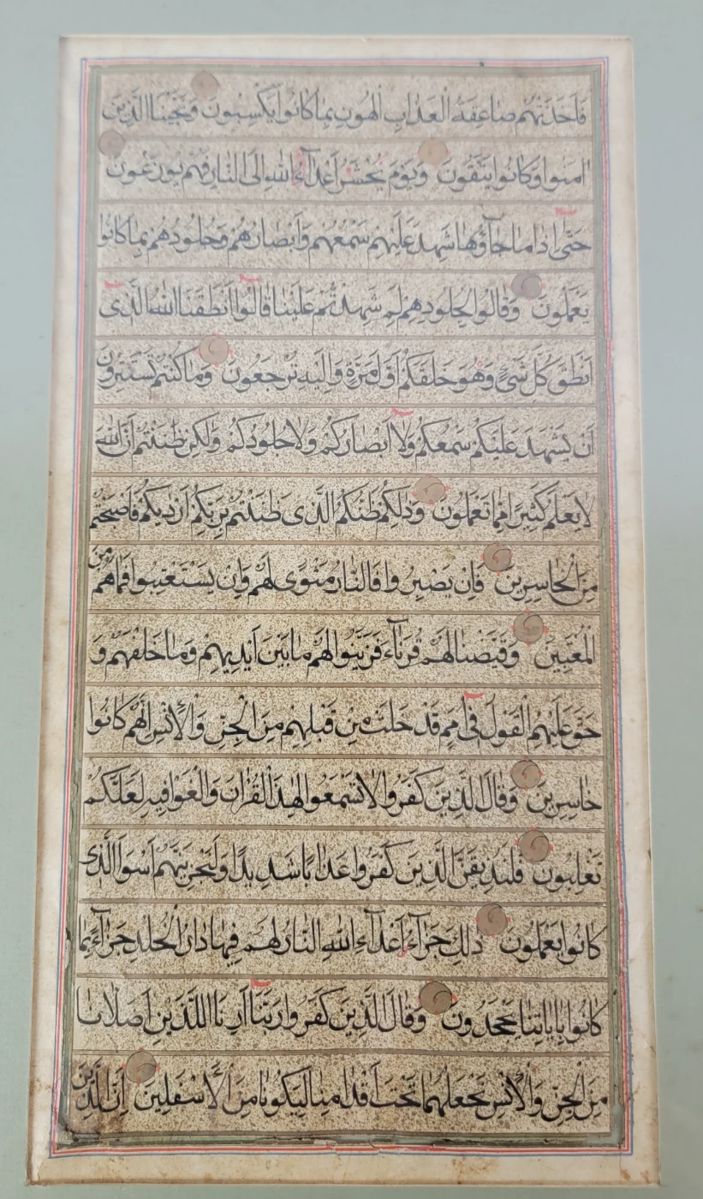 فَاَخَذَتْهُم صَاعِقَةُ الْعَذَابِ الْهُونِ بِمَا كَانُوا يَكْسِبُونَ وَنَجَّيْنَا الَّذِينَ
اٰمَنُوا وَكَانُوا يَتَّقُونَ وَيَوْمَ يُحْشَرُ اَعْدَآءُ اللهِ اِلَى النَّارِ فَهُم يُوزَعُونَ
حَتّٰى اِذَا مَا جَآؤُهَا شَهِدَ عَلَيْهِم سَمْعُهُم وَاَبْصَارُهُم وَجُلُودُهُم بِمَا كَانُوا
يَعْمَلُونَ وَقَالُوا لِجُلُودِهِم لِمَ شَهِدْتُم عَلَيْنَا قَالُوا اَنْطَقَنَا اللهُ الَّذِى
اَنْطَقَ كُلَّ شَىْءٍ وَهُوَ خَلَقَكُم اَوَّلَ مَرَّةٍ وَاِلَيْهِ تُرْجَعُونَ وَمَا كُنْتُم تَسْتَتِرُونَ
اَن يَشْهَدَ عَلَيْكُم سَمْعُكُم وَلَا اَبْصَارُكُم وَلَا جُلُودُكُم وَلٰكِن ظَنَنْتُم اَنَّ اللهَ
لَا يَعْلَمُ كَثِيرًا مِمَّا تَعْمَلُونَ وَذٰلِكُم ظَنُّكُمُ الَّذِى ظَنَنْتُم بِرَبِّكُم اَرْدٰيكُم فَاَصْبَحْتُم
مِنَ الْخَاسِرِينَ فَاِن يَصْبِرُوا فَالنَّارُ مَثْوًى لَهُم وَاِن يَسْتَعْتِبُوا فَمَا هُم مِنَ
الْمُعْتَبِينَ وَقَيَّضْنَا لَهُم قُرَنَآءَ فَزَيَّنُوا لَهُم مَا بَيْنَ اَيْدِيهِم وَمَا خَلْفَهُم وَ
حَقَّ عَلَيْهِمُ الْقَوْلُ فِى اُمَمٍ قَدْ خَلَتْ مِن قَبْلِهِم مِنَ الْجِنِّ وَالْاِنْسِ اِنَّهُم كَانُوا
خَاسِرِينَ وَقَالَ الَّذِينَ كَفَرُوا لَا تَسْمَعُوا لِهٰذَا الْقُرْاٰنِ وَالْغَوْا فِيهِ لَعَلَّكُم
تَغْلِبُونَ فَلَنُذِيقَنَّ الَّذِينَ كَفَرُوا عَذَابًا شَدِيدًا وَلَنَجْزِيَنَّهُم اَسْوَاَ الَّذِى
كَانُوا يَعْمَلُونَ ذٰلِكَ جَزَآءُ اَعْدَآءِ اللهِ النَّارُ لَهُم فِيهَا دَارُ الْخُلْدِ جَزَآءً بِمَا
كَانُوا بِاٰيَاتِنَا يَجْحَدُونَ وَقَالَ الَّذِينَ كَفَرُوا رَبَّنَا اَرِنَا اللَّذَيْنِ اَضَلَّانَا
مِنَ الْجِنِّ وَالْاِنْسِ نَجْعَلْهُمَا تَحْتَ اَقْدَامِنَا لِيَكُونَا مِنَ الْاَسْفَلِينَ اِنَّ الَّذِينَ